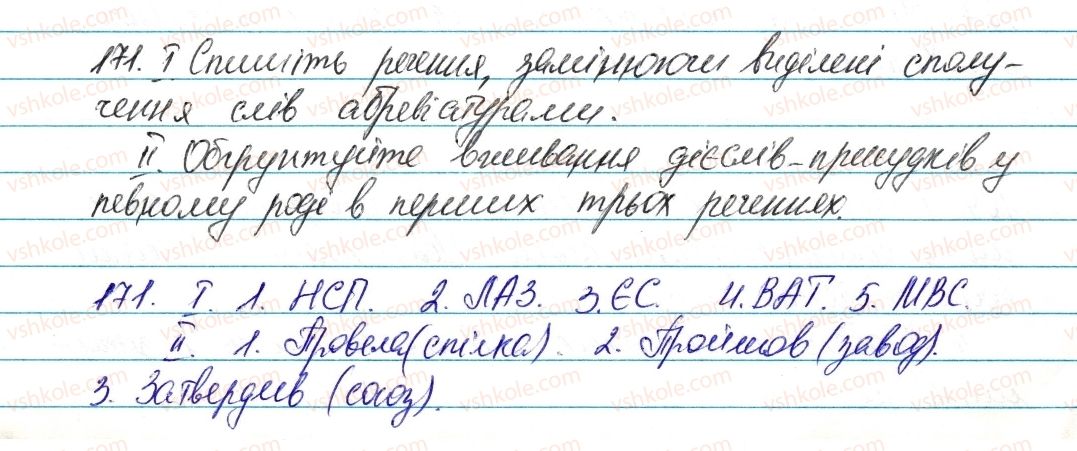 171. І Спишіть речення, замінюючи виділені сполу-
чення слів абревіатурами.
ІІ. Обґрунтуйте вживання дієслів-присудків у
певному роді в перших трьох реченнях.
171. І. 1. НСП. 2. ЛАЗ. 3. ЄС. 4. ВАТ. 5. МВС.
ІІ. 1. Провела (спілка). 2. Пройшов (завод).
3. Затвердив (союз).